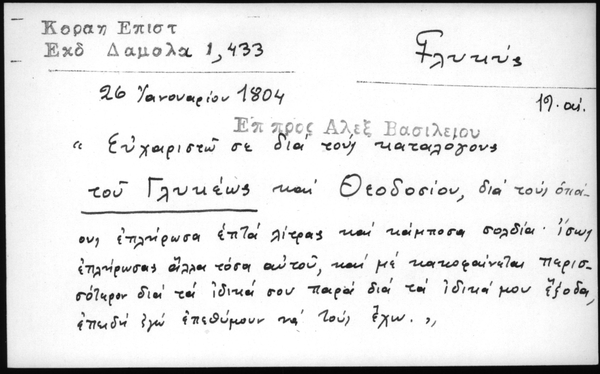 Κοραη Επιστ
Εκδ Δαμολα 1,433
Γλυκύς
26 Ἰανουαρίου 1804
19. αἰ.
Επ προς Αλεξ Βασιλειου
" Εὐχαριστῶ σε διά τούς καταλόγους
τοῦ Γλυκέως καί Θεοδοσίου, διά τούς ὁποί-
ους ἐπλήρωσα ἑπτά λίτρας καί κάμποσα σολδία· ἴσως
ἐπλήρωσας ἄλλα τόσα αὐτοῦ, καί μέ κακοφαίνεται περισ-
σότερον διά τά ἰδικά σου παρά διά τά ἰδικά μου ἔξοδα,
ἐπειδή ἐγώ ἐπεθύμουν νά τούς ἔχω. "